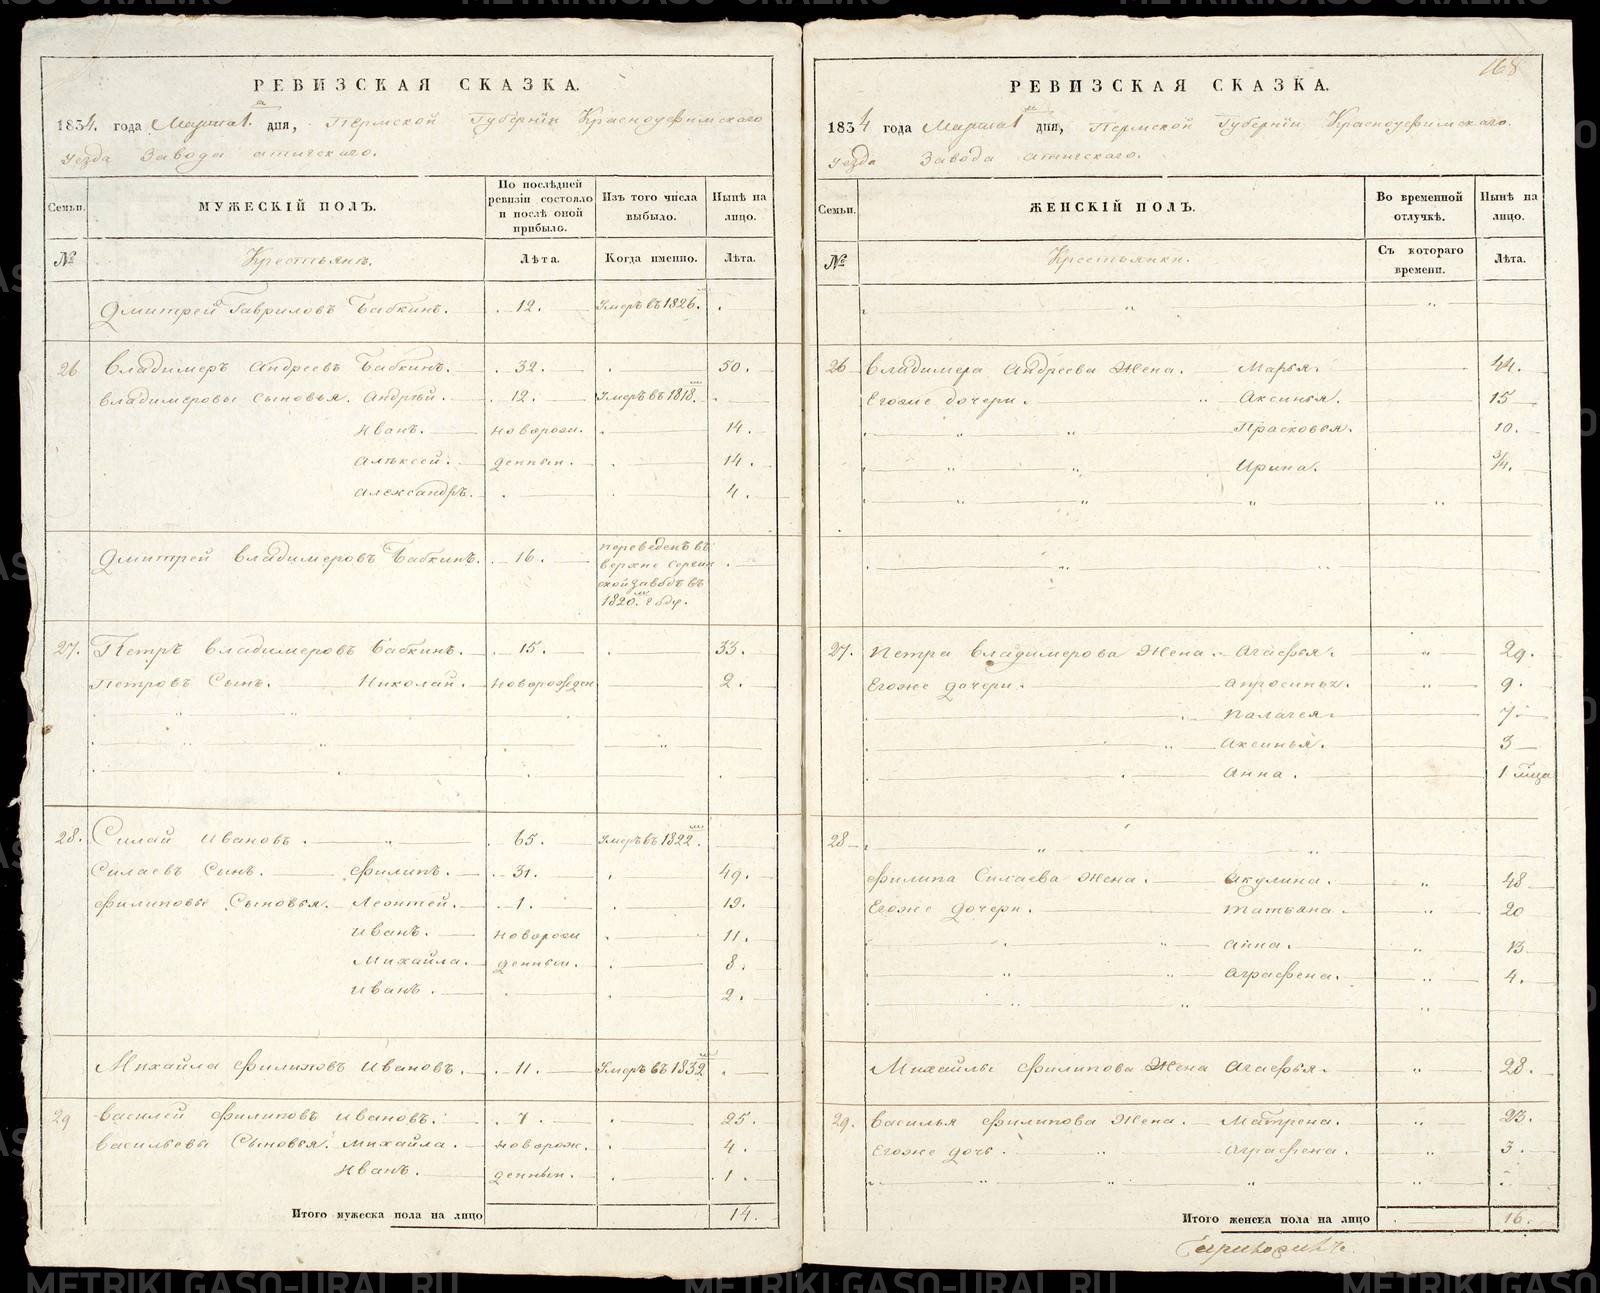 168
РЕВИЗСКАЯ СКАЗКА.
1834. года Марта 1. дня, Пермской Губернїи Красноуфимскаго
уезда Завода атигскаго.
Семьи. МУЖЕСКІЙ ПОЛЪ. По послѣдней ревизіи состояло и послѣ оной прибыло. Изъ того числа выбыло. Нынѣ на лицо.
№ Крестьянъ. Лѣта. Когда именно. Лѣта.
Дмитрей Гавриловъ Бабкинъ. 12. Умеръ въ 1826.
26 Владимеръ Андреевъ Бабкинъ. 32. 50.
Владимеровы сыновья. Андрѣй. 12. Умеръ въ 1818.
Иванъ. новорож. 14.
Алѣксей. денныи. 14.
Александръ. 4.
Дмитрей Владимеровъ Бабкинъ. 16. переведенъ въ
верхне серьги
ской заводъ въ
1820. году.
27. Петръ Владимеровъ Бабкинъ. 15. 33.
Петровъ Сынъ. Николай. новорожден 2.
28. Силай Ивановъ. 65. Умеръ въ 1822.
Силаевъ Сынъ. Филипъ. 31. 49.
Филиповы Сыновья. Леонтей. 1. 19.
Иванъ. новорож 11.
Михайла. денныи. 8.
Иванъ. 2.
Михайла Филиповъ Ивановъ. 11. Умеръ въ 1832
29 Василей Филиповъ Ивановъ. 7. 25.
Васильевы Сыновья. Михайла. новорож. 4.
Иванъ. денныи. 1.
Итого мужеска пола на лицо 14.
РЕВИЗСКАЯ СКАЗКА.
1834 года Марта 1 дня, Пермской Губернїи Красноуфимскаго.
уезда Завода атигскаго.
Семьи. ЖЕНСКІЙ ПОЛЪ. Во временной отлучкѣ. Нынѣ на лицо.
№ Крестьянки. Съ котораго времени. Лѣта.
26 Владимера Андреева Жена. Марья. 44.
Егоже дочери. Аксинья. 15
Прасковья. 10.
Ирина. 3/4.
27. Петра Владимерова Жена. Агафья. 29.
Егоже дочери. апросинья. 9.
Палагея. 7.
Аксинья. 3
Анна. 1 м҃ца
28
Филипа Силаева Жена. Акулина. 48
Егоже дочери. Татьяна. 20
Анна. 13
Аграфена. 4.
Михайлы Филипова Жена Агафья. 28.
29. Василья Филипова Жена. Матрена. 23.
Егоже дочь. Аграфена. 3.
Итого женска пола на лицо 16.
METRIKI.GASO-URAL.RU